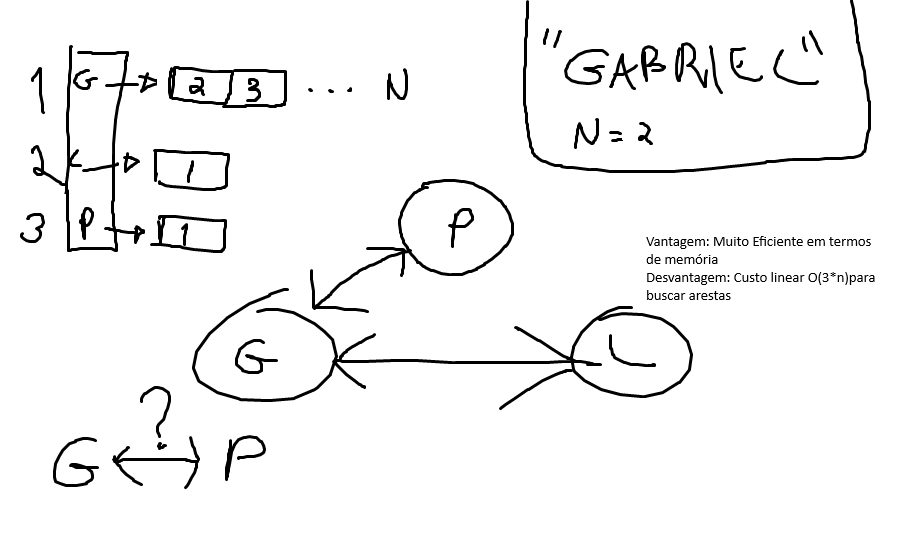 1 G 2 3 ... N
2 L 1
3 P 1
"GABRIEL"
N = 2
P
Vantagem: Muito Eficiente em termos
de memória
Desvantagem: Custo linear O(3*n)para
buscar arestas
G L
?
G P